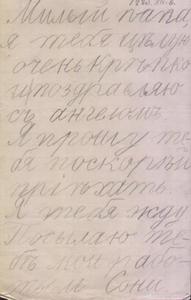 Милый папа
я тебя цѣлую
очень крѣпко
и поздравляю
съ ангеломъ.
Я прошу те
бя поскорѣй
пріѣхать.
Я тебя жду
Посылаю те
бѣ мои рабо
Сони